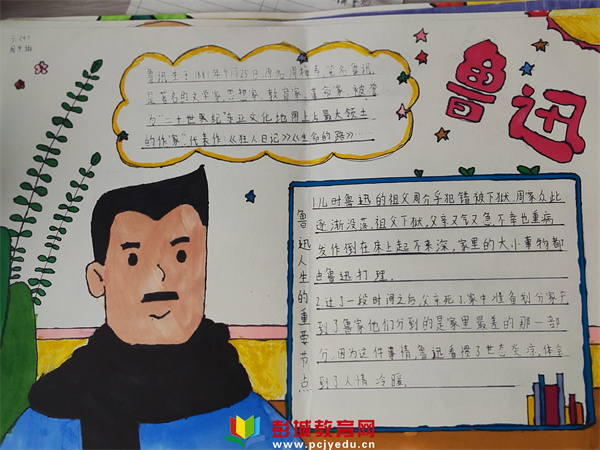 六(4)
鲁迅
鲁迅生于1881年9月25日,原名周樟寿,笔名鲁迅,
是著名的文学家、思想家、教育家、革命家,被誉
为"二十世纪东亚文化地图上占最大领土
的作家"代表作:《狂人日记》《生命的路》……
鲁迅人生的重要节点
1.儿时鲁迅的祖父周介孚犯错被下狱,周家众此
逐渐没落,祖父下狱,父亲又气又急,不幸也重病
发作倒在床上起不来深,家里的大小事物都
由鲁迅打理.
2.过了一段时间之后,父亲死了,家中准备划分家产
到了鲁家他们分到的是家里最差的那一部
分,因为这件事情,鲁迅看惯了世态炎凉,体会
到了人情冷暖.
彭城教育网
www.pcjyedu.cn